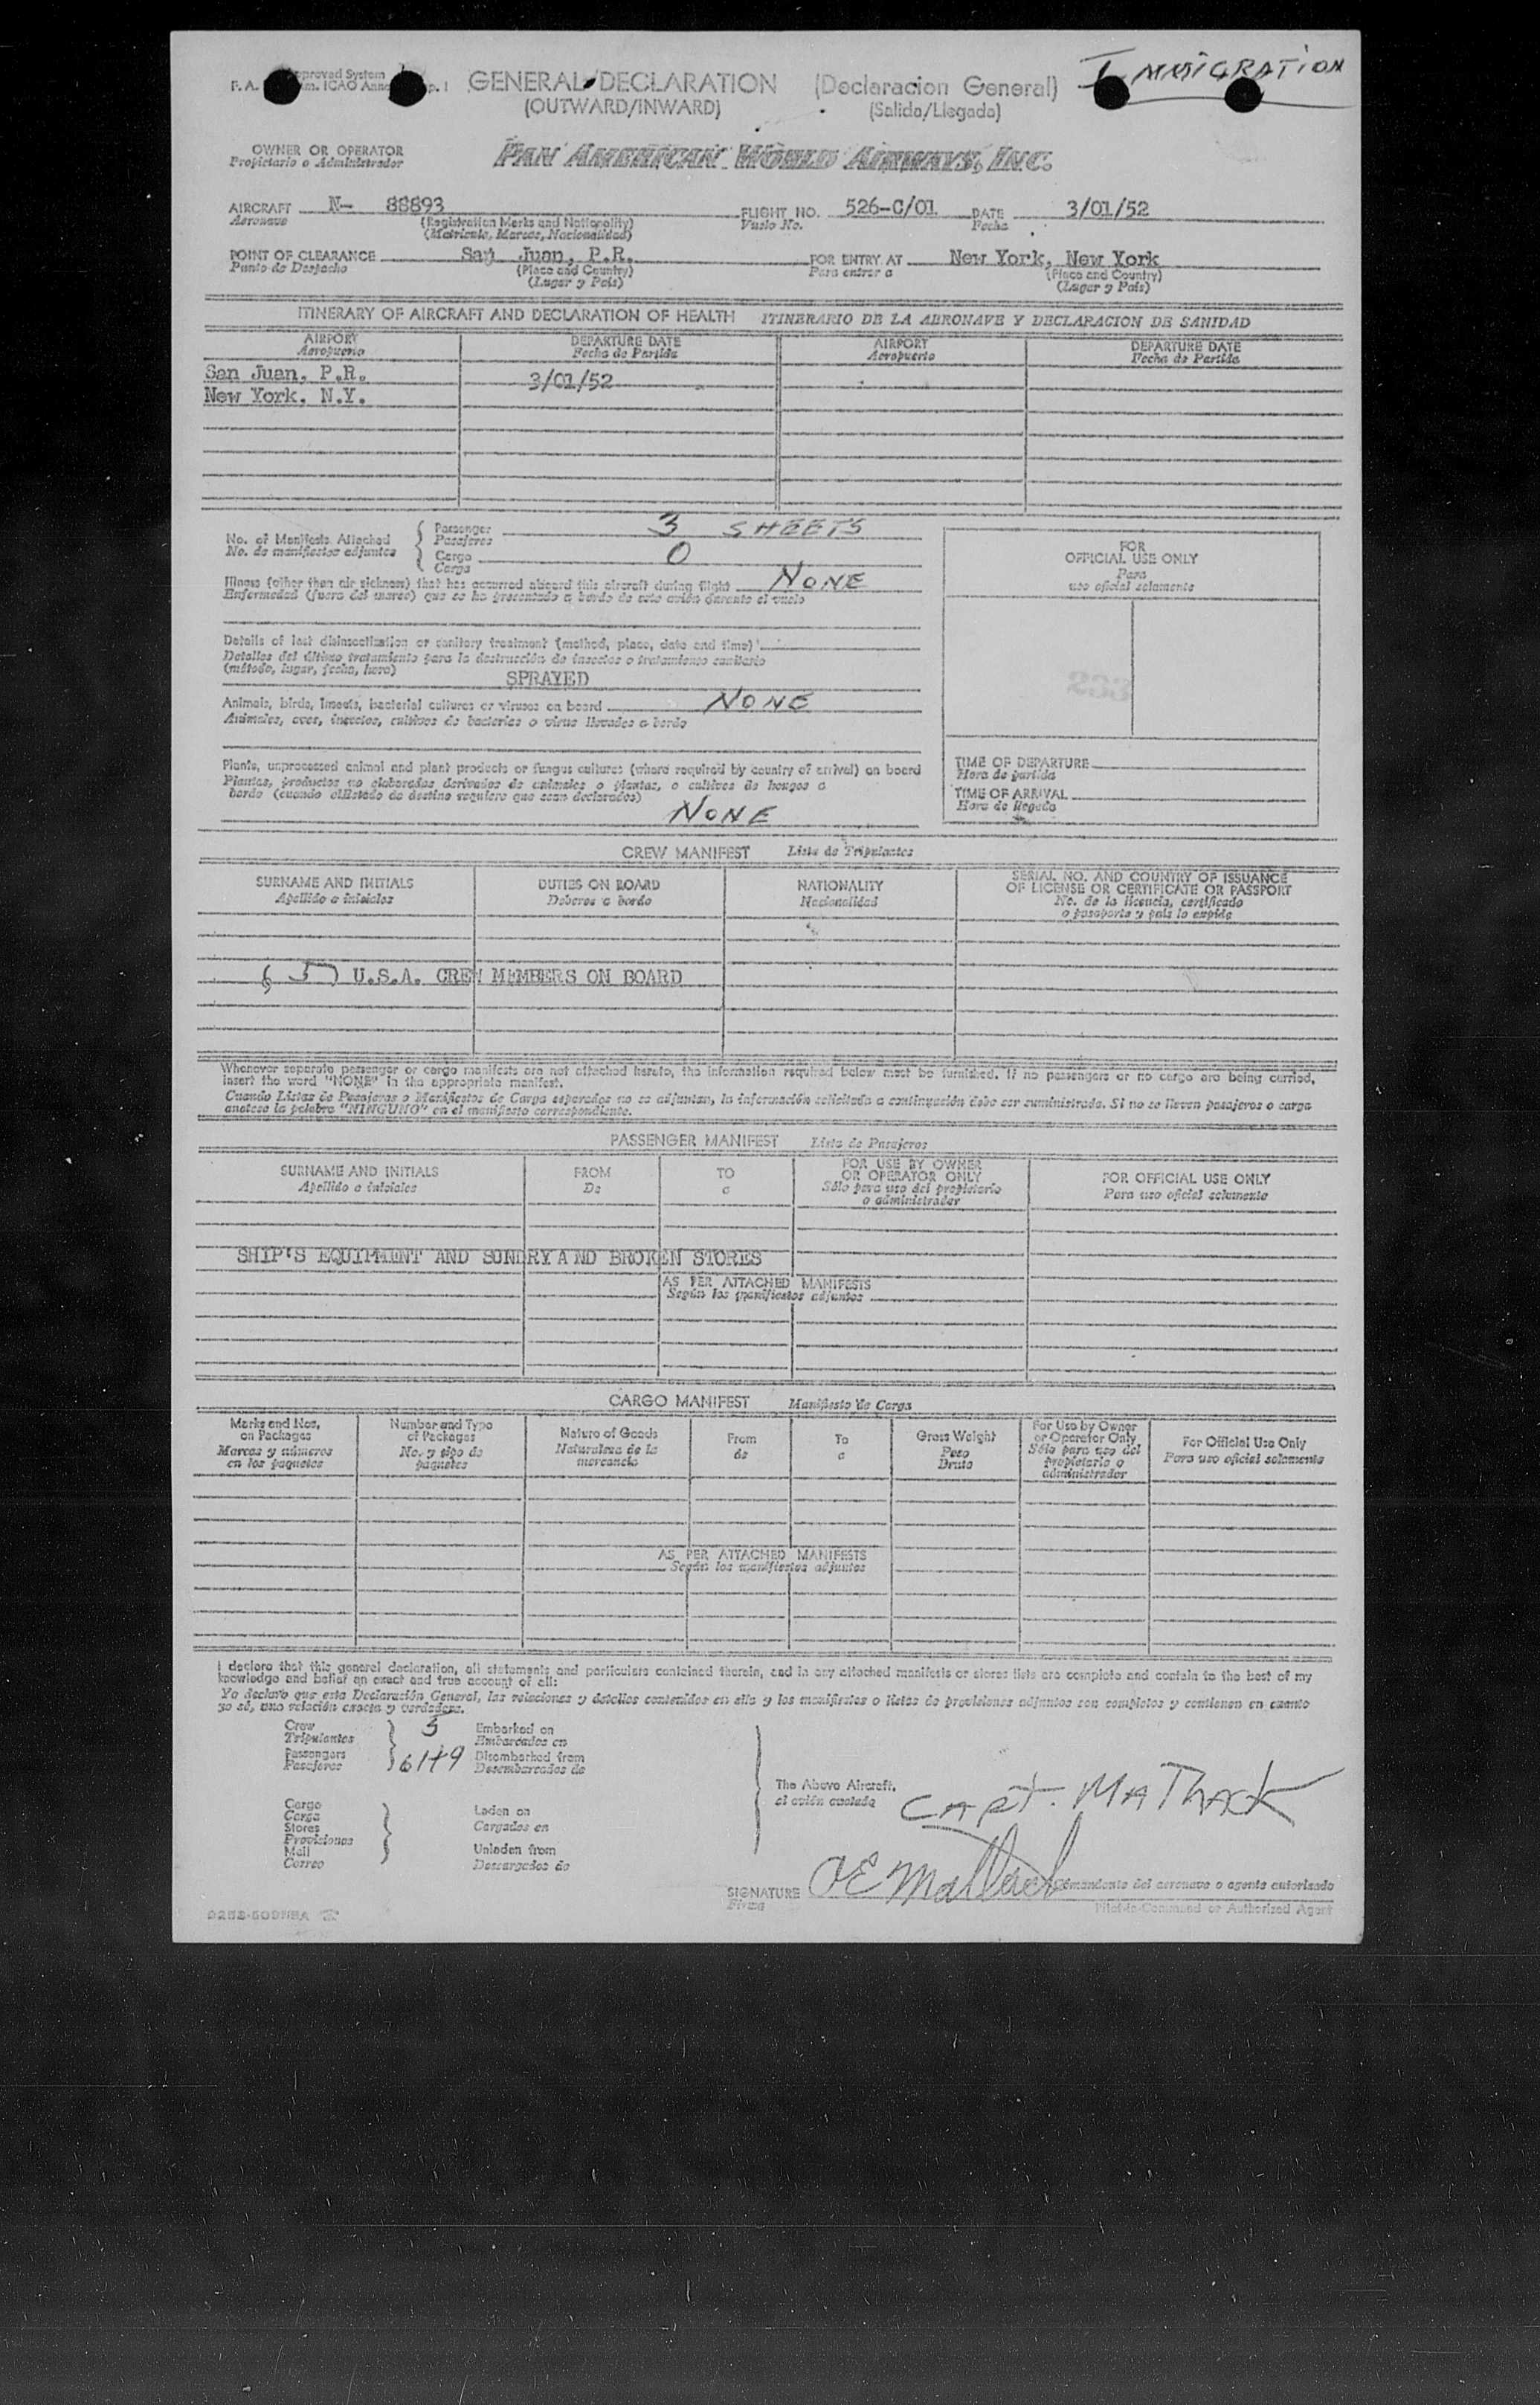 Approved System
F. A. m. ICAO Anne p. 1
GENERAL DECLARATION (Declaracion General) IMMIGRATION
(OUTWARD/INWARD) (Salida/Llegada)
OWNER OR OPERATOR PAN AMERICAN WORLD AIRWAYS, INC.
Propietario o Administrador
AIRCRAFT N- 88893 FLIGHT NO. 526-C/01 DATE 3/01/52
Aeronave (Registration Marks and Nationality) Vuelo No. Fecha
(Matricula, Marcas, Nacionalidad)
POINT OF CLEARANCE San Juan, P.R. FOR ENTRY AT New York, New York
Punto de Despacho (Place and Country) Para entrar a (Place and Country)
(Lugar y Pais) (Lugar y Pais)
ITINERARY OF AIRCRAFT AND DECLARATION OF HEALTH ITINERARIO DE LA AERONAVE Y DECLARACION DE SANIDAD
AIRPORT DEPARTURE DATE AIRPORT DEPARTURE DATE
Aeropuerto Fecha de Partida Aeropuerto Fecha de Partida
San Juan, P.R. 3/01/52
New York, N.Y.
No. of Manifests Attached Passenger 3 SHEETS
No. de manifiestos adjuntos Pasajeros
Cargo 0
Carga
Illness (other than air sickness) that has occurred aboard this aircraft during flight NONE
Enfermedad (fuera del mareo) que se ha presentado a bordo de este avión durante el vuelo
Details of last disinsectization or sanitary treatment (method, place, date and time)
Detalles del último tratamiento para la destrucción de insectos o tratamiento sanitario
(método, lugar, fecha, hora)
SPRAYED
Animals, birds, insects, bacterial cultures or viruses on board NONE
Animales, aves, insectos, cultivos de bacterias o virus llevados a bordo
Plants, unprocessed animal and plant products or fungus cultures (where required by country of arrival) on board
Plantas, productos no elaborados derivados de animales o plantas, o cultivos de hongos a
bordo (cuando el Estado de destino requiera que sean declarados)
NONE
FOR
OFFICIAL USE ONLY
Para
uso oficial solamente
233
TIME OF DEPARTURE
Hora de partida
TIME OF ARRIVAL
Hora de llegada
CREW MANIFEST Lista de Tripulantes
SURNAME AND INITIALS DUTIES ON BOARD NATIONALITY SERIAL NO. AND COUNTRY OF ISSUANCE
Apellido e iniciales Deberes a bordo Nacionalidad OF LICENSE OR CERTIFICATE OR PASSPORT
No. de la licencia, certificado
o pasaporte y pais lo expide
( 5 ) U.S.A. CREW MEMBERS ON BOARD
Whenever separate passenger or cargo manifests are not attached hereto, the information required below must be furnished. If no passengers or no cargo are being carried,
insert the word "NONE" in the appropriate manifest.
Cuando Listas de Pasajeros o Manifiestos de Carga separados no se adjuntan, la información solicitada a continuación debe ser suministrada. Si no se llevan pasajeros o carga
anotese la palabra "NINGUNO" en el manifiesto correspondiente.
PASSENGER MANIFEST Lista de Pasajeros
SURNAME AND INITIALS FROM TO FOR USE BY OWNER FOR OFFICIAL USE ONLY
Apellido e iniciales De a OR OPERATOR ONLY Para uso oficial solamente
Sólo para uso del propietario
o administrador
SHIP'S EQUIPMENT AND SUNDRY AND BROKEN STORES
AS PER ATTACHED MANIFESTS
Según los manifiestos adjuntos
CARGO MANIFEST Manifiesto de Carga
Marks and Nos. Number and Type Nature of Goods From To Gross Weight For Use by Owner For Official Use Only
on Packages of Packages Naturaleza de la de a Peso or Operator Only Para uso oficial solamente
Marcas y números No. y tipo de mercancia Bruto Sólo para uso del
en los paquetes paquetes propietario o
administrador
AS PER ATTACHED MANIFESTS
Según los manifiestos adjuntos
I declare that this general declaration, all statements and particulars contained therein, and in any attached manifests or stores lists are complete and contain to the best of my
knowledge and belief an exact and true account of all:
Yo declaro que esta Declaración General, las relaciones y detalles contenidos en ella y los manifiestos o listas de provisiones adjuntos son completos y contienen en cuanto
yo sé, una relación exacta y verdadera.
Crew 5 Embarked on
Tripulantes Embarcados en
Passengers 61+9 Disembarked from
Pasajeros Desembarcados de
The Above Aircraft,
el avión anotado
CAPT. MATLACK
Cargo Laden on
Carga Cargados en
Stores
Provisiones
Mail Unladen from
Correo Descargados de
SIGNATURE OE Matlack Comandante del aeronave o agente autorizado
Firma Pilot-in-Command or Authorized Agent